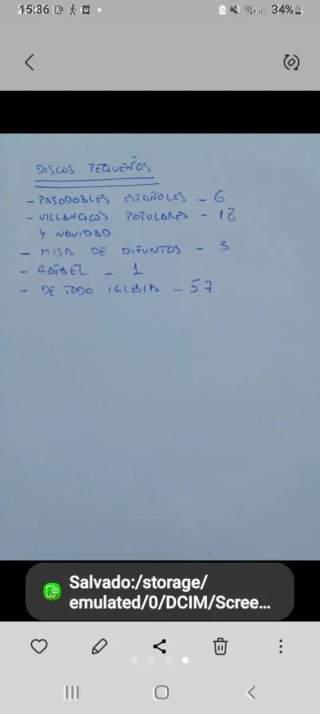 15:36
34%
DISCOS PEQUEÑOS
- PASODOBLES ESPAÑOLES - 6
- VILLANCICOS POPULARES - 18
Y NAVIDAD
- MISA DE DIFUNTOS - 3
- RAFAEL - 1
- DE TODO IGLESIA - 57
Salvado:/storage/
emulated/0/DCIM/Scree...